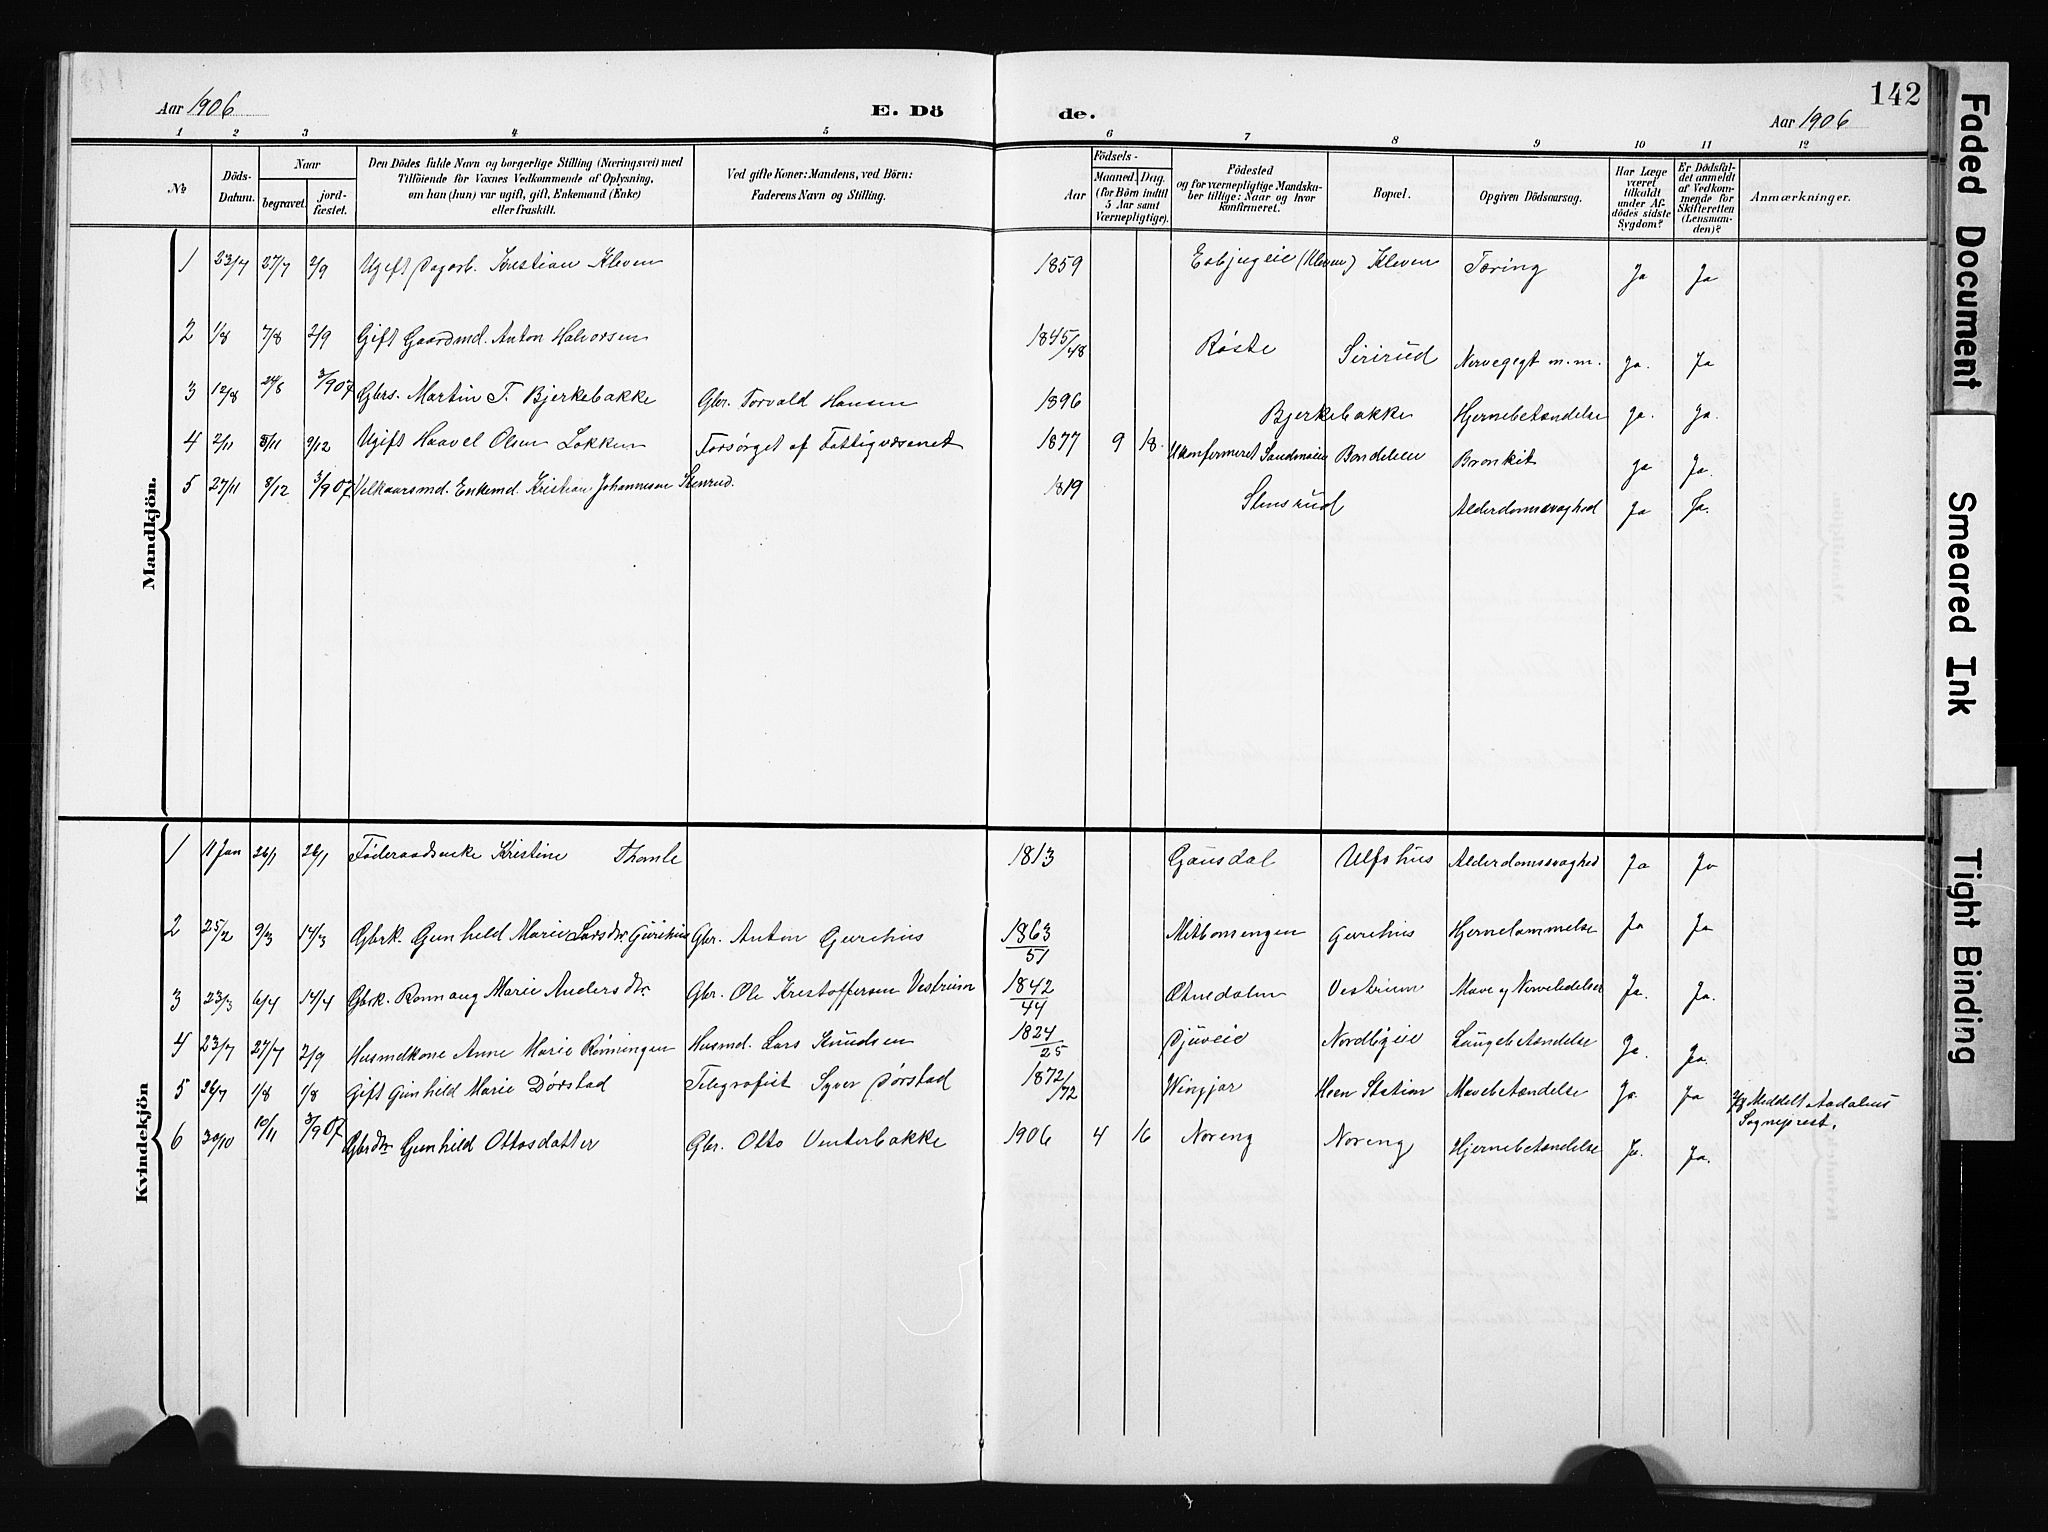 142
Aar 1906 E. Dö de. Aar 1906
1 2 3 4 5 6 7 8 9 10 11 12
No
Döds-Datum.
Naar begravet. jordfæstet.
Den Dödes fulde Navn og borgerlige Stilling (Næringsvei) med Tilföiende for Voxnes Vedkommende af Oplysning, om han (hun) var ugift, gift, Enkemand (Enke) eller fraskilt.
Ved gifte Koner: Mandens, ved Börn: Faderens Navn og Stilling.
Födsels- Aar Maaned. Dag. (for Börn indtil 5 Aar samt Værnepligtige).
Födested og for værnepligtige Mandskaber tillige: Naar og hvor konfirmeret.
Bopæl.
Opgiven Dödsaarsag.
Har Læge været tilkaldt under Afdödes sidste Sygdom?
Er Dödsfaldet anmeldt af Vedkommende for Skifteretten (Lensmanden)?
Anmærkninger.
Mandkjön.
1 23/7 27/7 2/9 Ugift Dagarb. Kristian Kleven 1859 Esbjugeie (Kleven) Kleven Tæring Ja Ja
2 1/8 7/8 2/9 Gift Gaardmd. Anton Halvorsen 1845/48 Røste Sirirud Nervegegt m.m. Ja. Ja
3 12/8 24/8 3/9 07 Gbrs. Martin T. Bjerkebakke Gbr. Torvald Hansen 1896 Bjerkebakke Hjernebetændelse Ja. Ja.
4 2/11 8/11 9/12 Ugift Haavel Olsen Løkken Forsørget af Fattigvæsenet 1877 9 18 Ukonfirmeret Bondelien Bronkit Ja Ja.
5 27/11 8/12 3/9 07 Velkaarsmd. Enkemd. Kristian Johannesen Stenrud. 1819 Stensrud Alderdomssvaghed Ja Ja.
Kvindekjön
1 11 Jan 26/1 26/1 Føderaadsenke Kristine Thomle 1813 Gausdal Ulfshus Alderdomssvaghed Ja Ja
2 25/2 9/3 14/3 Gbrk. Gunhild Marie Larsdtr Gurihus Gbr. Anton Gurihus 1863/51 Mitbonsengen Gurihus Hjernelammelse Ja Ja
3 23/3 6/4 14/4 Gbrk. Ronnaug Marie Andersdtr. Gbr. Ole Kristoffersen Vestrum 1842/44 Etnedalen Vestrum Mave og Nervelidelse Ja. Ja.
4 23/7 27/7 2/9 Husmdkone Anne Marie Rønningen Husmd. Lars Knudsen 1824/25 Djuveie Nordbyeie Lungebetændelse Ja. Ja.
5 26/7 1/8 1/8 Gift Gunhild Marie Dørstad Telegrafist Syver Dørstad 1872/72 Wingjar Heen Station Mavebetændelse Ja. Ja Meddelt Aadalens
Sogneprest.
6 30/10 10/11 3/9 07 Gbrdtr Gunhild Ottosdatter Gbr. Otto Vinterbakke 1906 4 16 Noreng Noreng Hjernebetændelse Ja. Ja.
Faded Document
Smeared Ink
Tight Binding